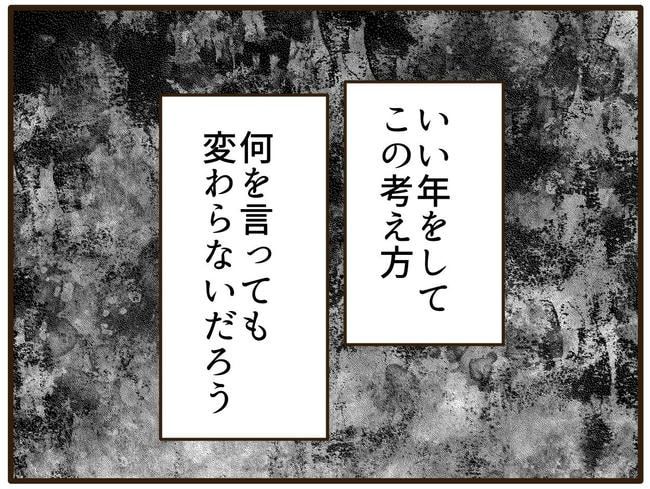 いい年をして
この考え方
何を言っても
変わらないだろう